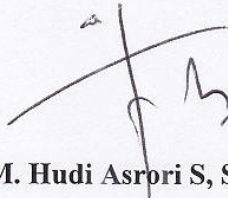 M. Hudi Asrori S, S